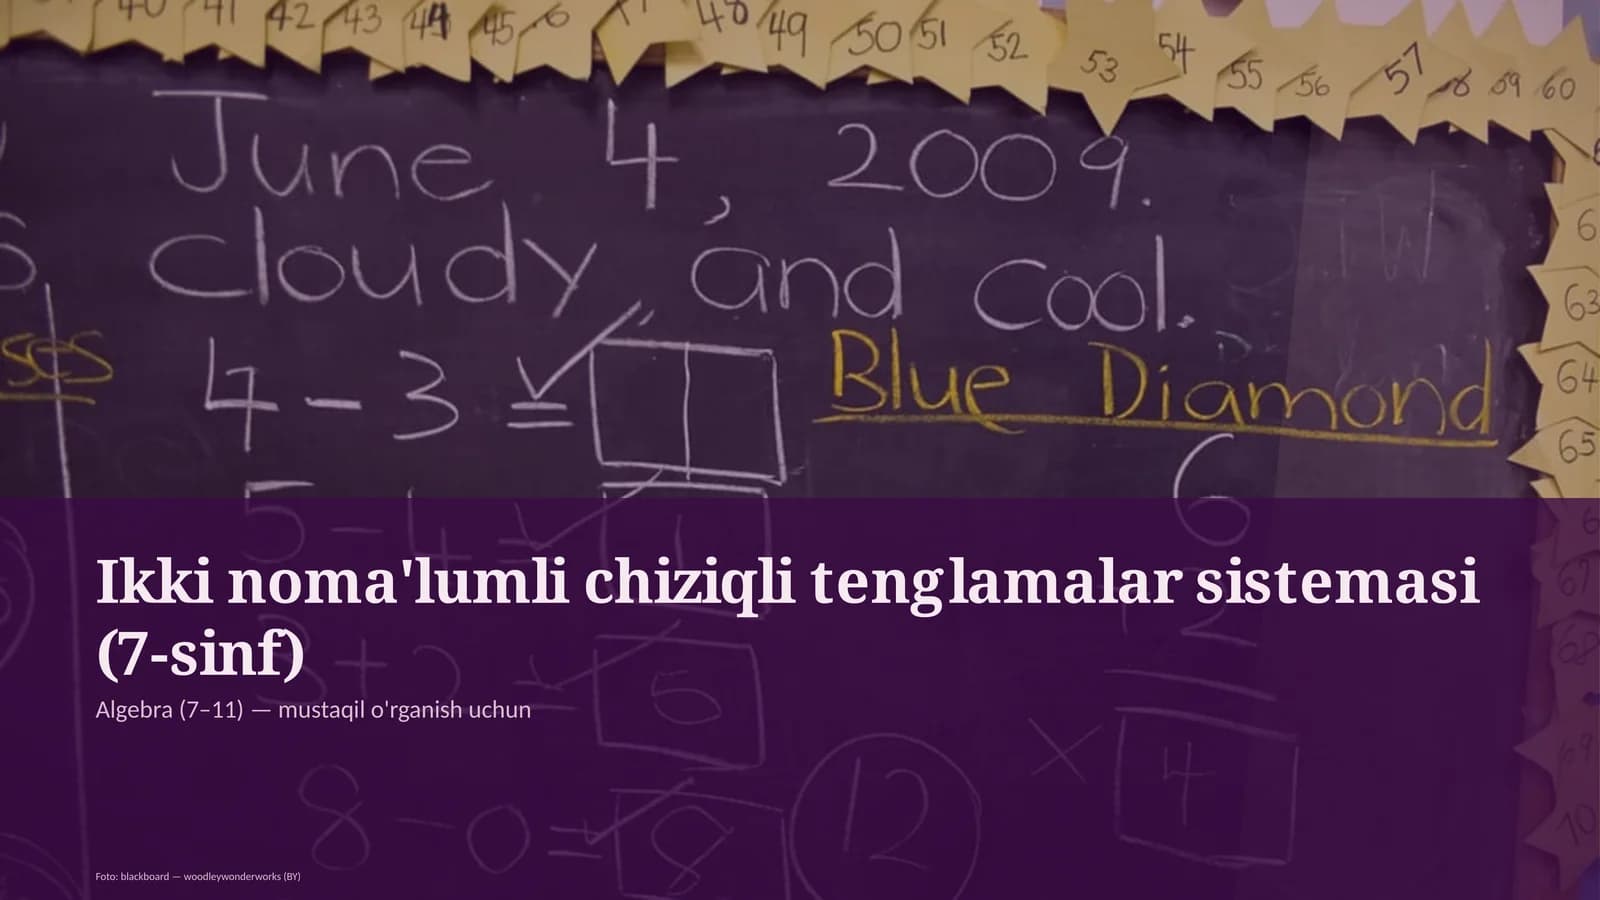 40 41 42 43 44 45 48 49 50 51 52 53 54 55 56 57 58 59 60
June 4, 2009.
Cloudy and cool.
ses 4 - 3 = 1 Blue Diamond
63
64
65
5 - 4 = 1 6
67
Ikki noma'lumli chiziqli tenglamalar sistemasi
(7-sinf)
3 + 2 = 5 12
Algebra (7–11) — mustaqil o'rganish uchun
× 4
69
8 - 0 = 8 12
70
Foto: blackboard — woodleywonderworks (BY)